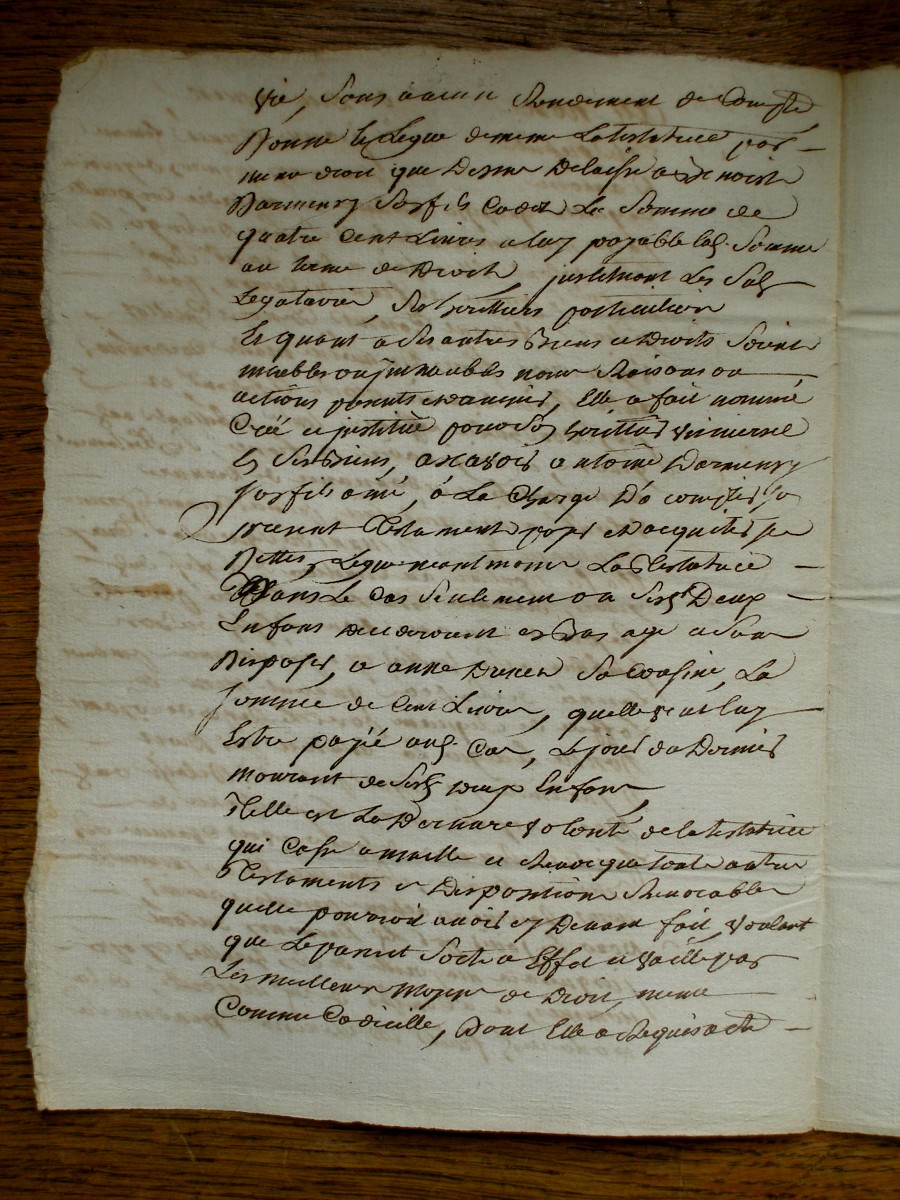 vie, sans aucun Rendement de Compte
Donne et Legue de meme La testatrice par
meme droit que Dessus Delaisse a Benoist
Darmenry Son fils Cadet La Somme de
quatre Cent Livres a luy payable lad. Somme
au terme de Droit, justituant Les Sud.
Legataires, Ses heritiers particuliers
Et quant a Ses autres Biens et Droits Soient
meubles ou jmmeubles noms Raisons ou
actions presents et advenir, Elle a fait nommé
Créé et justitué pour Son heritier Universel
En Ses Biens, a Scavoir antoine Darmenry
Son fils ainé, a La Charge D'acomplir Le
present Testament payer et acquiter Ses
Dettes, Legue neantmoins La Testatrice
Dans Le Cas Seulement ou Sesd. Deux
Enfans decederoient en Bas age et Sans
Disposer, a anne Sa Cousine, La
Somme de Cent Livres, quelle veut luy
Estre payée aud. Cas, Le jour du Dernier
mourant de Sesd. deux Enfans
Telle est La Derniere volonté de la testatrice
qui Casse annulle et Revoque toute autres
Testaments et Disposition Revocables
quelle pourroit avoir cy Devant fait, voulant
que Le present Sorte a Effet et vaille par
Les meilleurs moyens de Droit, meme
Comme Codicille, Dont Elle a Requis acte